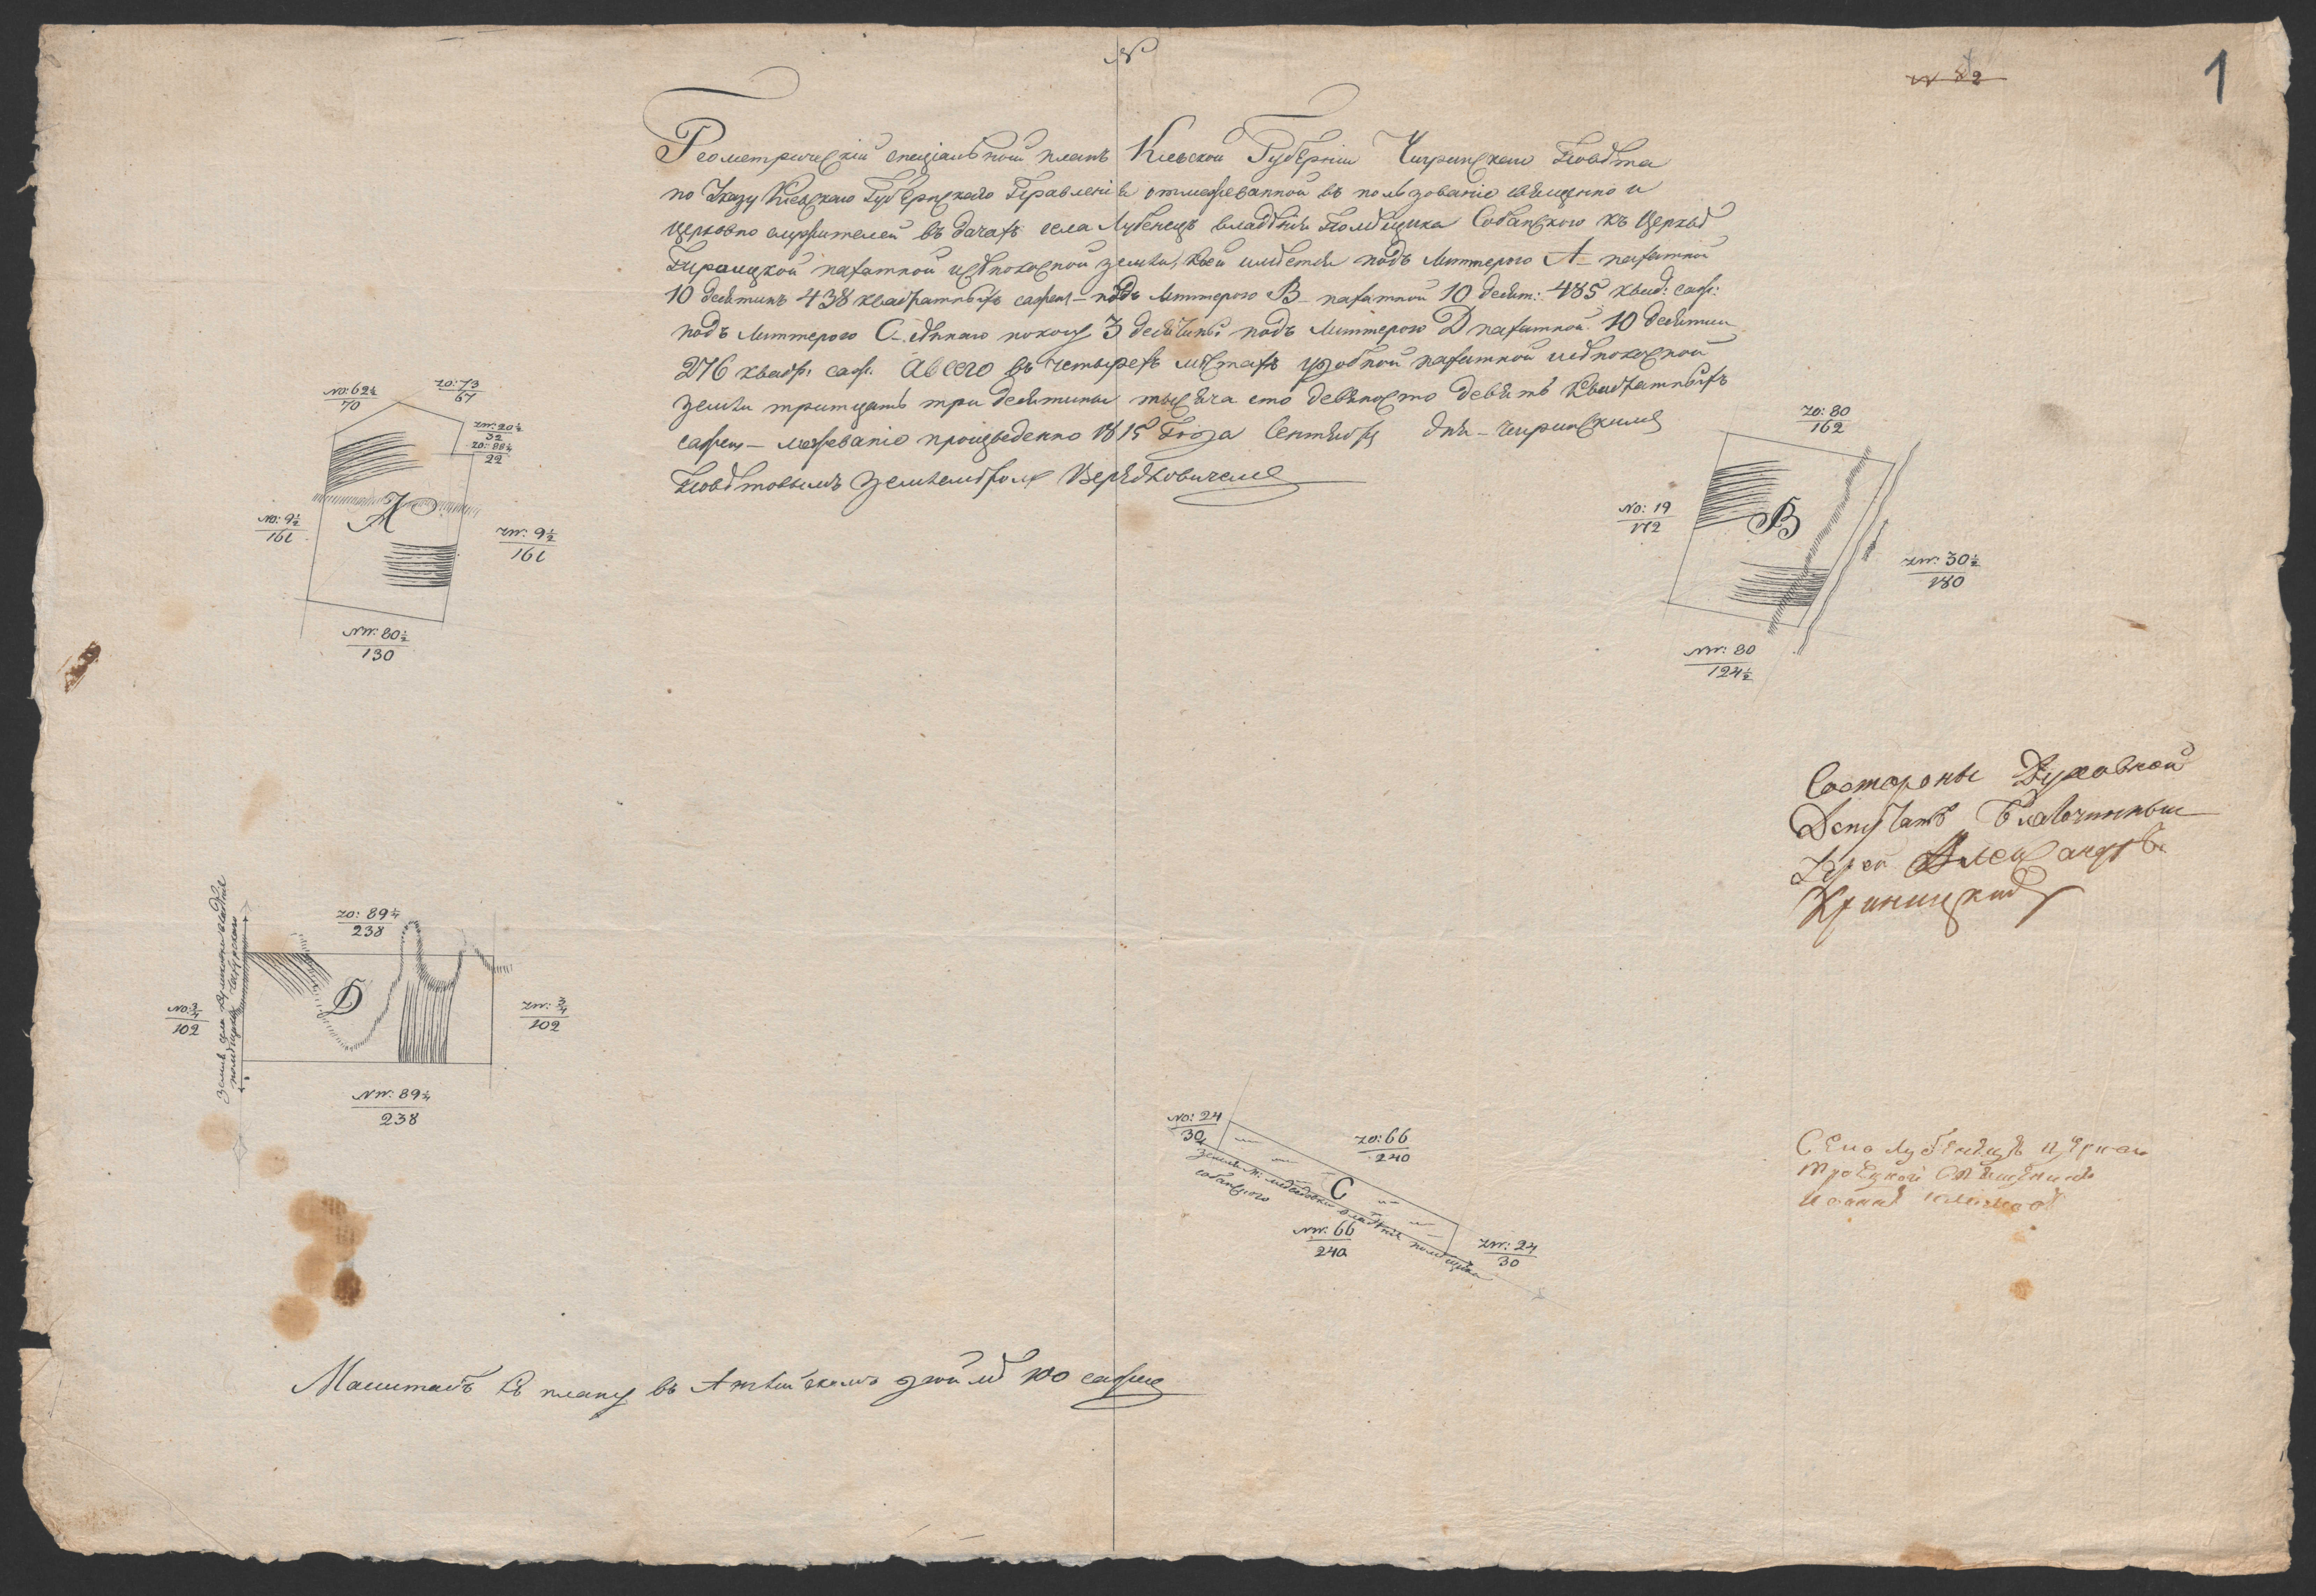 N
N 82
1
Геометрический специальной планъ Киевской Губернии Чигринскаго Повѣта
по Указу Киевскаго Губернскаго Правления отмежеванной въ пользование священно и
церковно служителей въ дачахъ села Лубенецъ владѣния Помѣщика Собанского къ Церквѣ
Тироицкой пахатной исѣнокосной земли, коей имѣется подъ Литтерою А пахатной
10 десятинъ 438 квадратныхъ сажен – подъ Литтерою В пахатной 10 десят: 485 квад: саж:
подъ Литтерою С – сѣннаго покосу 3 десятины подъ Литтерою D пахатной 10 десятин
276 квадр: саж: Авсего въ четырехъ мѣстахъ удобной пахатной исѣнокосной
земли тритцать три десятины тысяча сто девяносто девять квадратныхъ
сажен – межевание произведенно 1815 Года Сентября дня – Чигринскимъ
Повѣтовымъ Землемѣромъ
NO: 62½
70
ZO: 73
67
ZW: 20½
32
ZO: 88½
22
NO: 9½
161
A
ZW: 9½
161
NW: 80½
130
ZO: 80
162
NO: 19
172
B
ZW: 30½
180
NW: 80
124½
Состороны Духовной
Депутатъ Благочинный
Иерей Александръ
Криницкий
ZO: 89¼
238
NO: ¾
102
Земля села владѣние
помѣщика
D
ZW: ¾
102
NW: 89¼
238
NO: 24
30
ZO: 66
240
C
земля м: медведовки владѣния помѣщика
собанского
NW: 66
240
ZW: 24
30
Села Лубенецъ церкви
Троецкой Священникъ
Иоаннъ
Маштабъ къ плану въ Английскомъ дюймѣ 100 сажен